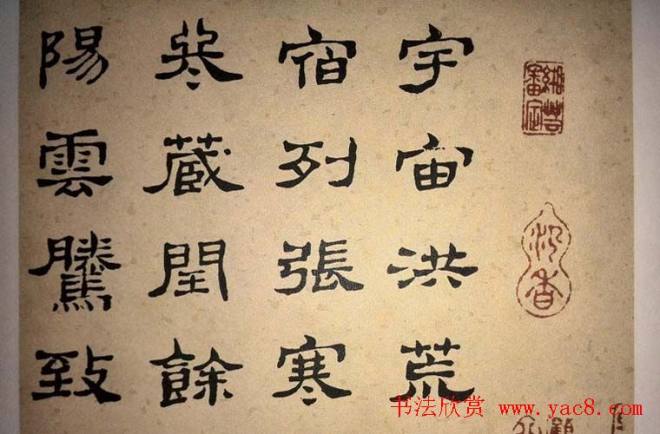 宇宙洪荒
宿列張寒
冬藏閏餘
陽雲騰致
书法欣赏 www.yac8.com